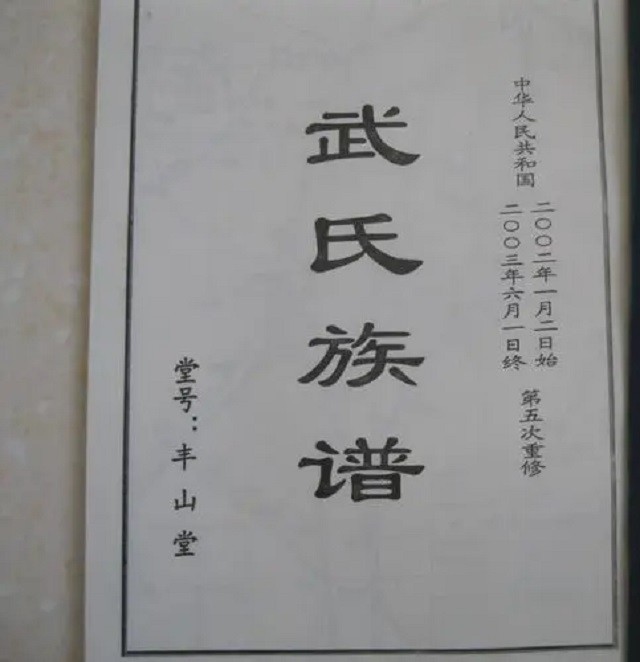 中华人民共和国
二〇〇二年一月二日始
二〇〇三年六月一日终
第五次重修
武氏族谱
堂号：丰山堂